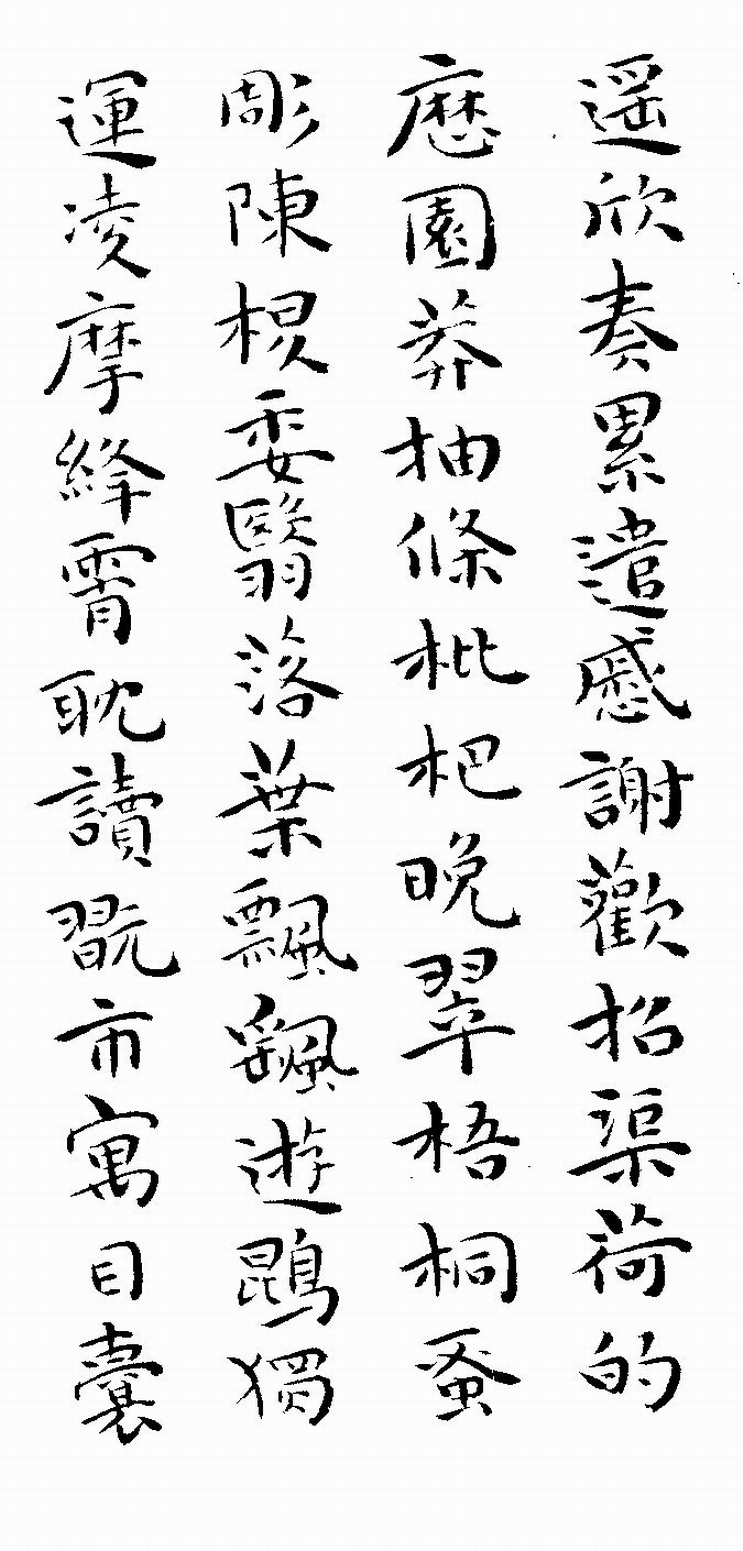 遙欣奏累遣慼謝歡招渠荷的
歷園莽抽條枇杷晚翠梧桐蚤
彫陳根委翳落葉飄颻遊鵾獨
運凌摩絳霄耽讀翫市寓目囊